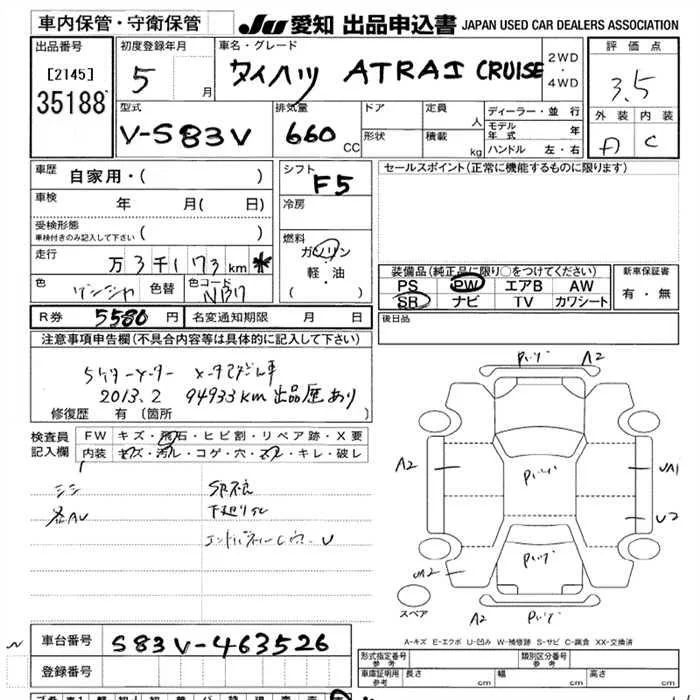 車内保管・守衛保管
JU 愛知 出品申込書 JAPAN USED CAR DEALERS ASSOCIATION
出品番号
[2145]
35188
初度登録年月
5 月
車名・グレード
ダイハツ ATRAI CRUISE
2WD
・
4WD
評価点
3.5
外装 内装
A C
型式
V-S83V
排気量
660 CC
ドア
形状
定員 人
積載 kg
ディーラー・並行
モデル年式 年
ハンドル 左・右
車歴
自家用・( )
車検
年 月( 日)
受検形態
車検付きのみ記入して下さい ( )
走行
万3千173km *
色
色替
色コード
シフト
F5
冷房
燃料
ガソリン
軽・油
( )
セールスポイント(正常に機能するものに限ります)
装備品(純正品に限り〇をつけてください)
PS PW エアB AW
SR ナビ TV カワシート
新車保証書
有・無
後日品
R券 5580 円
名変通知期限 月 日
注意事項申告欄(不具合内容等は具体的に記入して下さい)
2013.2 94933km 出品歴あり
修復歴 有 〔箇所 〕
検査員
記入欄
FW キズ・飛石・ヒビ割・リペア跡・X要
内装 キズ・汚レ・コゲ・穴・スレ・キレ・破レ
シミ
各AU
SR不良
下廻りサビ
A2
A2
A2
UA1
U2
UA2
A2
スペア
A-キズ E-エクボ U-凹み W-補修跡 S-サビ C-腐食 XX-交換済
車台番号
S83V-463526
登録番号
形式指定番号
参考
類別区分番号
参考
車庫証明用
参考
長さ cm
幅 cm
高さ cm